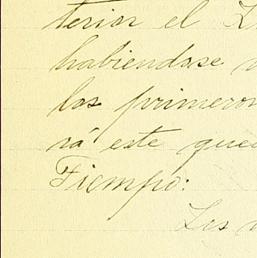 terior el
habiendose
los primeros
rá este que
Tiempo:
Los